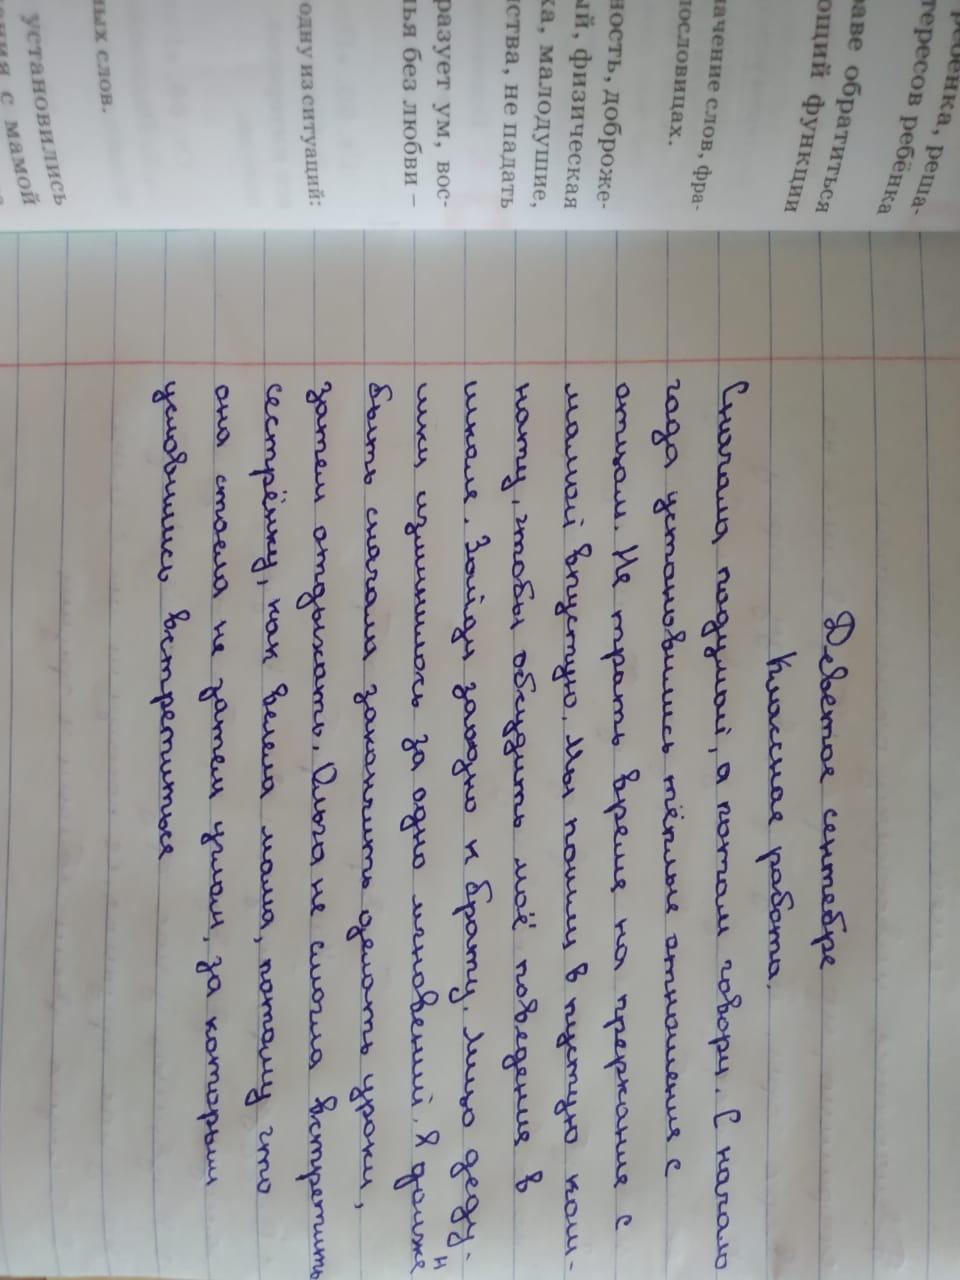 ребёнка, реша-
тересов ребёнка
раве обратиться
ощий функции
начение слов, фра-
ословицах.
ность, доброже-
ый, физическая
ка, малодушие,
ства, не падать
разует ум, вос-
ья без любви –
одну из ситуаций:
ных слов.
установились
ния с мамой
Деветое сентебре
Классная работа.
Сначала подумай, а потом говори. С начало
года установились тёплые отношения с
отцом. Не трать время на прержание с
мамой впустую. Мы пошли в пустую ком-
нату, чтобы обсудить моё поведения в
школе. Зайди заодно к брату. Лицо деду-
шки изминилось за одно мгновений. Я должен
быть сначала закончить делать уроки,
затем отдыхать. Ольга не смогла встретить
сестрёнку, как велела мама, потому что
она стоела не затем углом, за которым
условились встретиться